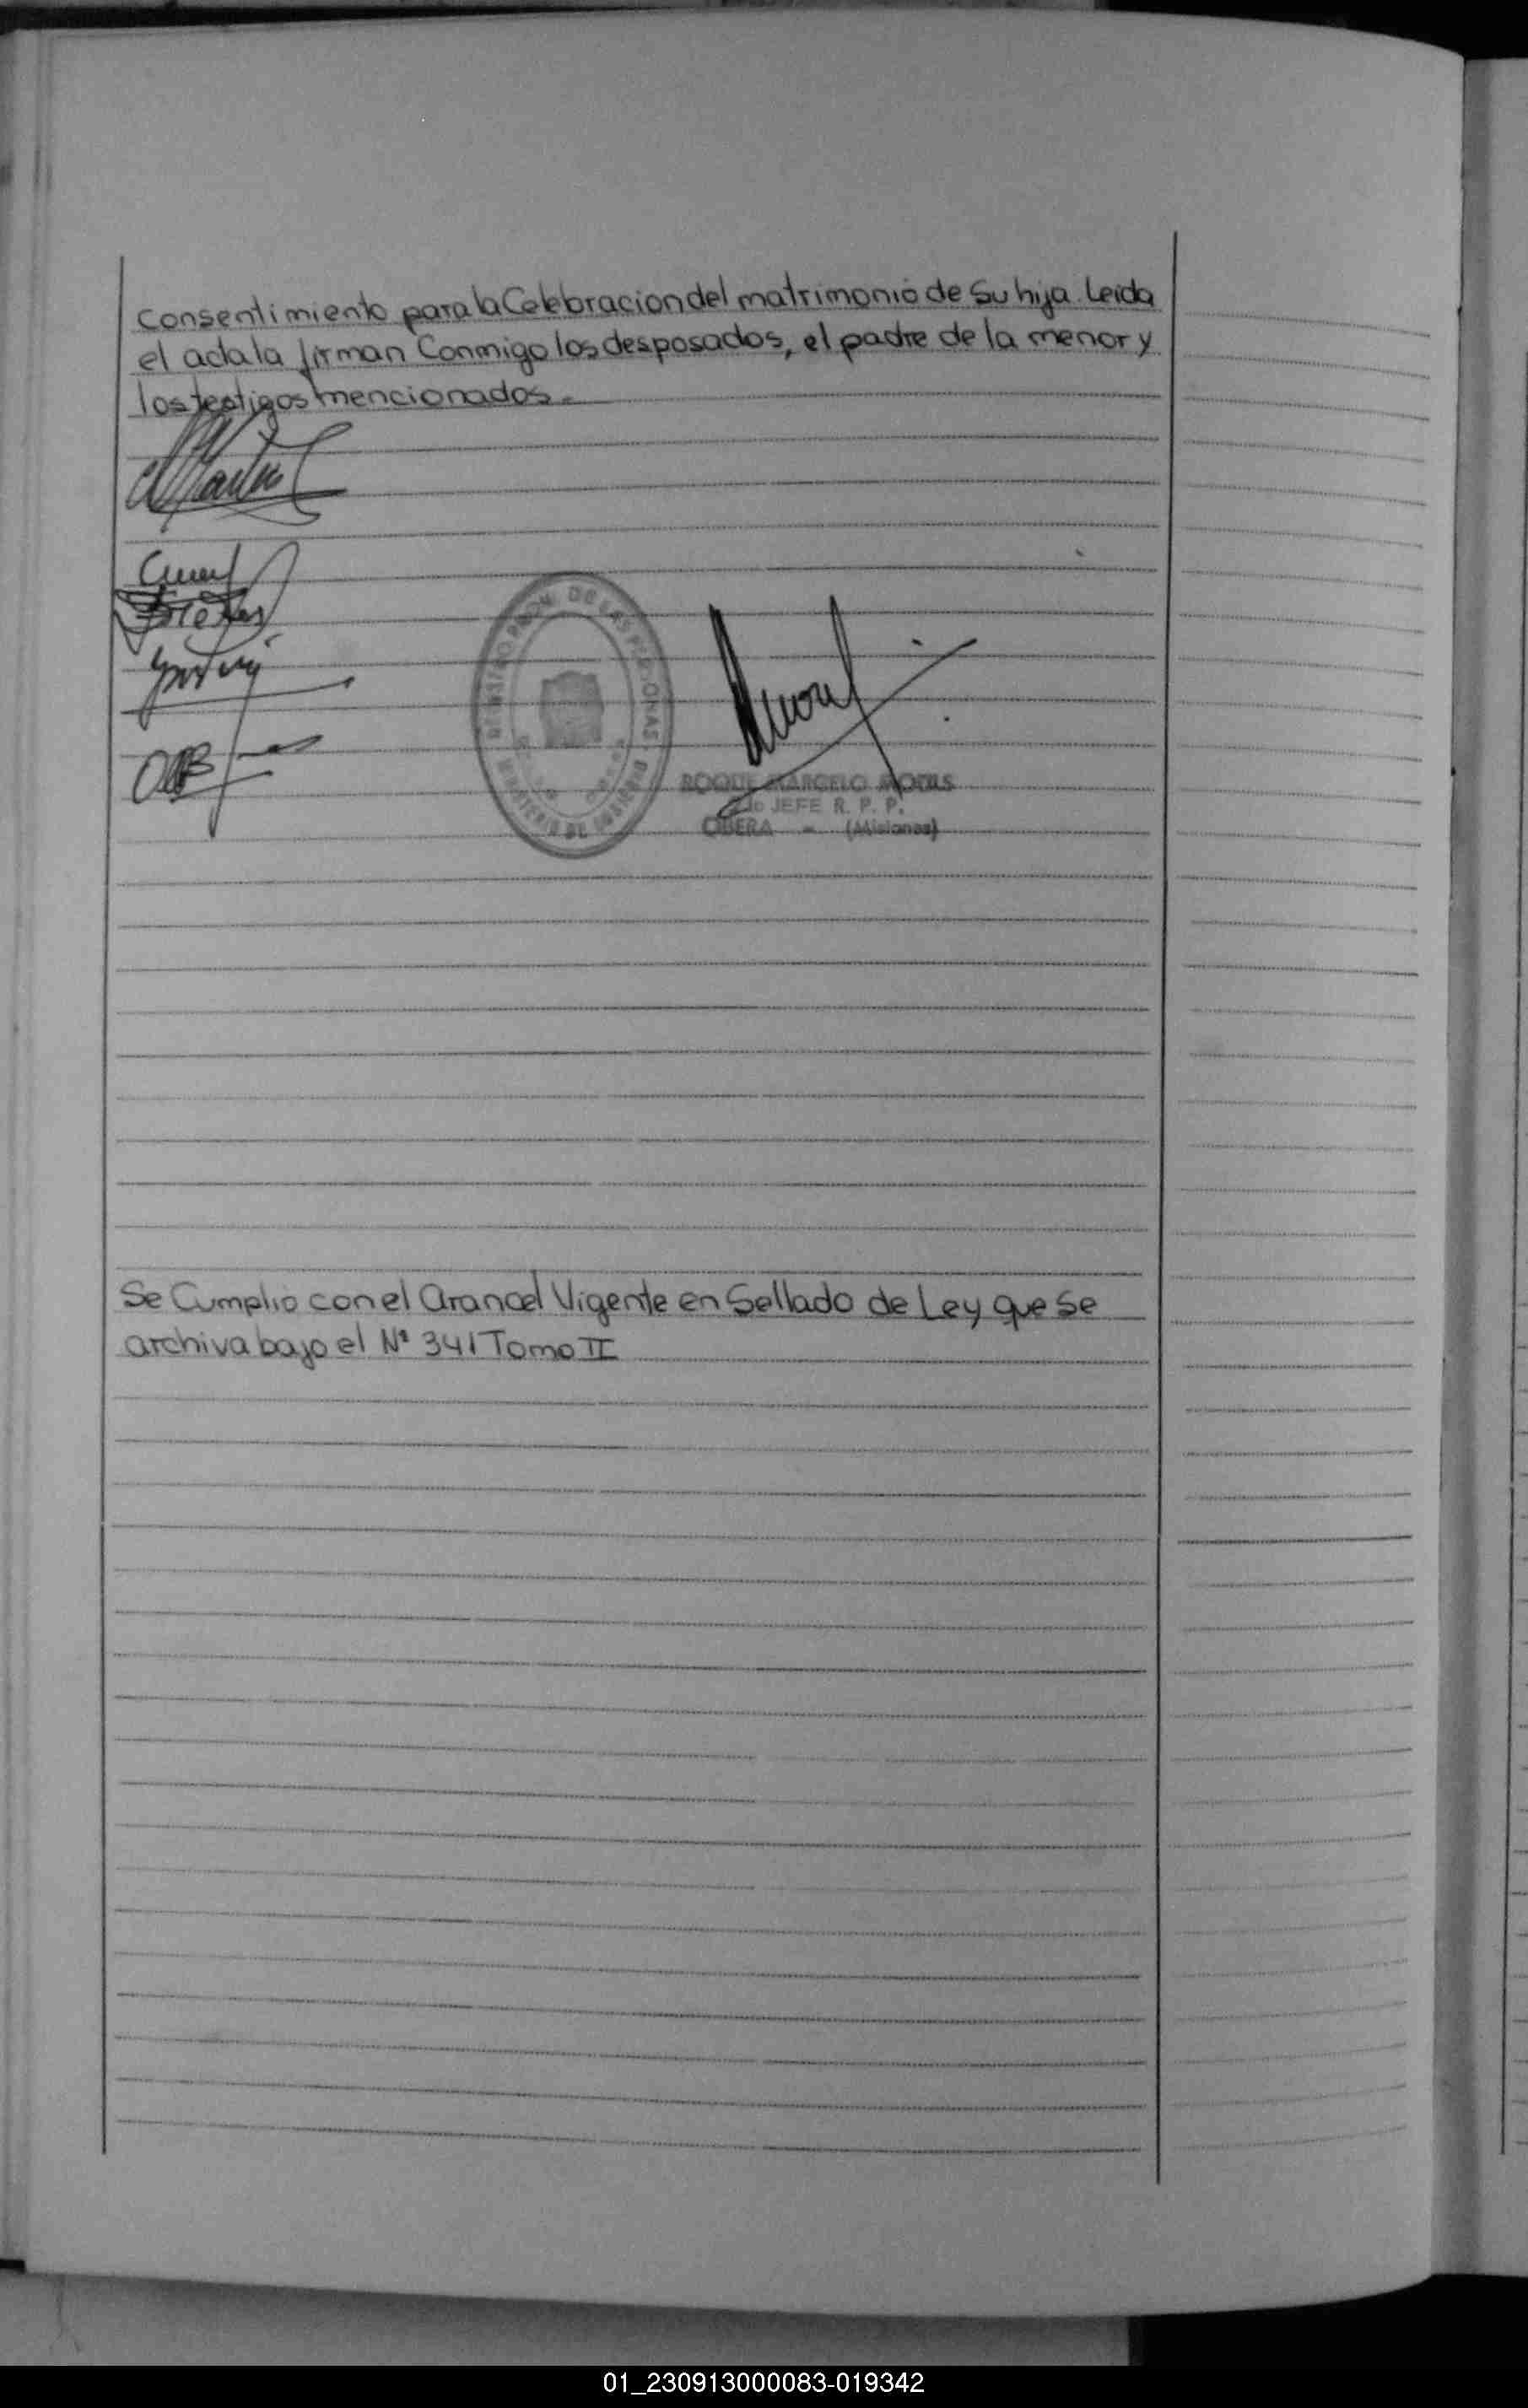 Consentimiento para la Celebracion del matrimonio de Su hija. Leida
el acta la firman Conmigo los desposados, el padre de la menor y
los testigos mencionados.-
DE LAS PERSONAS
ROQUE MARCELO
JEFE R. P. P.
OBERA - (Misiones)
Se Cumplio con el Arancel Vigente en Sellado de Ley que Se
archiva bajo el Nº 341 Tomo II
01_230913000083-019342